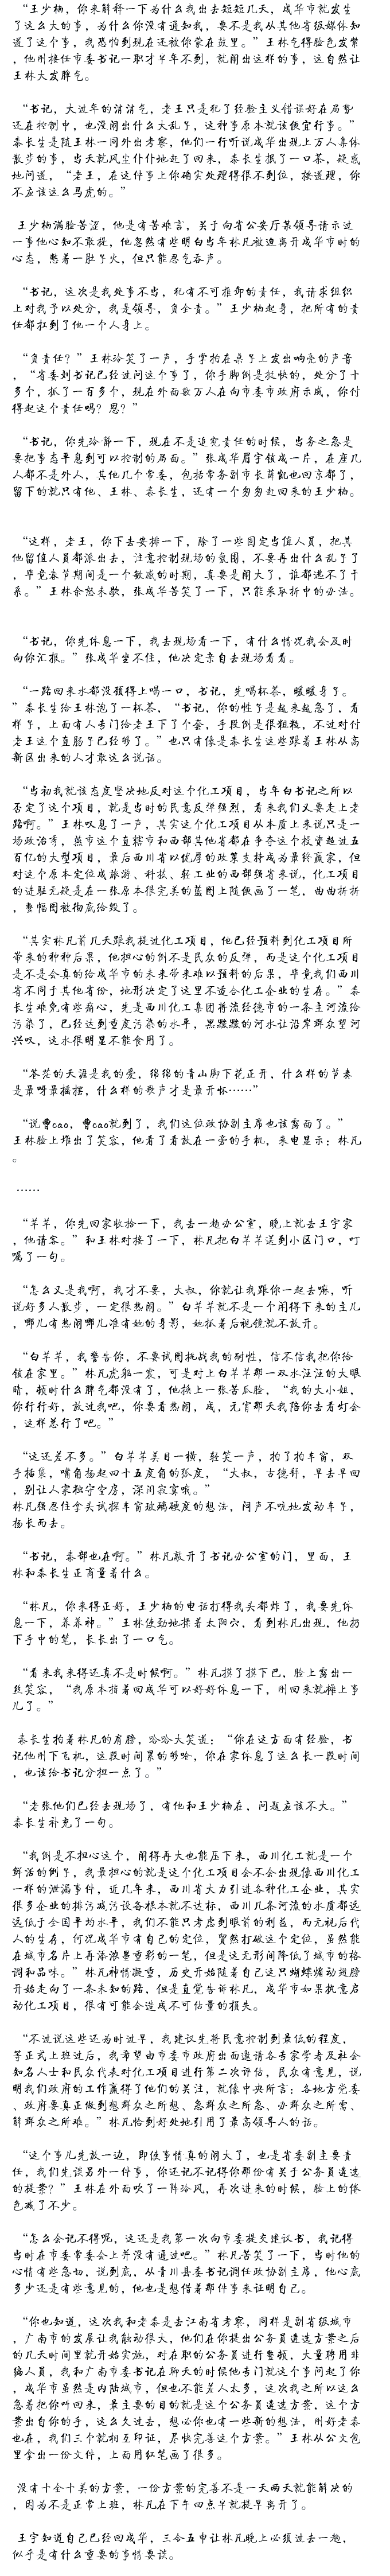 “王少楠，你来解释一下为什么我出去短短几天，成华市就发生
了这么大的事，为什么你没有通知我，要不是我从其他省级媒体知
道了这个事，我恐怕到现在还被你蒙在鼓里。”王林气得脸色发紫
，他刚接任市委书记一职才半年不到，就闹出这样的事，这自然让
王林大发脾气。
“书记，大过年的消消气，老王只是犯了经验主义错误好在局势
还在控制中，也没闹出什么大乱子，这种事原本就该便宜行事。”
秦长生是随王林一同外出考察，他们一行听说成华出现上万人集体
散步的事，当天就风尘仆仆地赶了回来，秦长生抿了一口茶，疑惑
地问道，“老王，在这件事上你确实处理得很不到位，按道理，你
不应该这么马虎的。”
王少楠满脸苦涩，他是有苦难言，关于向省公安厅某领导请示过
一事他心知不敢提，他忽然有些明白当年林凡被迫离开成华市时的
心态，憋着一肚子火，但只能忍气吞声。
“书记，这次是我处事不当，犯有不可推卸的责任，我请求组织
上对我予以处分，我是领导，负全责。”王少楠起身，把所有的责
任都扛到了他一个人身上。
“负责任？”王林冷笑了一声，手掌拍在桌子上发出响亮的声音
，“省委刘书记已经过问这个事了，你手脚倒是挺快的，处分了十
多个，抓了一百多个，现在外面数万人在向市委市政府示威，你付
得起这个责任吗？恩？”
“书记，你先冷静一下，现在不是追究责任的时候，当务之急是
要把事态平息到可以控制的局面。”张成华眉宇锁成一片，在座几
人都不是外人，其他几个常委，包括常务副市长薛凯也回京都了，
留下的就只有他、王林、秦长生，还有一个匆匆赶回来的王少楠。
“这样，老王，你下去安排一下，除了一些固定当值人员，把其
他留值人员都派出去，注意控制现场的氛围，不要再出什么乱子了
，毕竟春节期间是一个敏感的时期，真要是闹大了，谁都逃不了干
系。”王林余怒未歇，张成华苦笑了一下，只能采取折中的办法。
“书记，你先休息一下，我去现场看一下，有什么情况我会及时
向你汇报。”张成华坐不住，他决定亲自去现场看看。
“一路回来水都没顾得上喝一口，书记，先喝杯茶，暖暖身子。
”秦长生给王林泡了一杯茶，“书记，你的性子是越来越急了，看
样子，上面有人专门给老王下了个套，手段倒是很粗糙，不过对付
老王这个直肠子已经够了。”也只有像是秦长生这些跟着王林从高
新区出来的人才敢这么说话。
“当初我就该态度坚决地反对这个化工项目，当年白书记之所以
否定了这个项目，就是当时的民意反弹强烈，看来我们又要走上老
路啊。”王林叹息了一声，其实这个化工项目从本质上来说只是一
场政治秀，燕市这个直辖市和西部其他省都在争夺这个投资超过五
百亿的大型项目，最后西川省以优厚的政策支持成为最终赢家，但
对这个原本定位成旅游、科技、轻工业的西部强省来说，化工项目
的进驻无疑是在一张原本很完美的蓝图上随便画了一笔，曲曲折折
，整幅图被彻底给毁了。
“其实林凡前几天跟我提过化工项目，他已经预料到化工项目所
带来的种种后果，他担心的倒不是民众的反弹，而是这个化工项目
是不是会真的给成华市的未来带来难以预料的后果，毕竟我们西川
省不同于其他省份，地形决定了这里不适合化工企业的生存。”秦
长生难免有些痛心，先是西川化工集团将流经德市的一条主河流给
污染了，已经达到重度污染的水平，黑黢黢的河水让沿岸群众望河
兴叹，这水很明显不能食用了。
“苍茫的天涯是我的爱，绵绵的青山脚下花正开，什么样的节奏
是最呀最摇摆，什么样的歌声才是最开怀……”
“说曹cao，曹cao就到了，我们这位政协副主席也该露面了。”
王林脸上堆出了笑容，他看了看放在一旁的手机，来电显示：林凡
。
……
“芊芊，你先回家收拾一下，我去一趟办公室，晚上就去王宇家
，他请客。”和王林对接了一下，林凡把白芊芊送到小区门口，叮
嘱了一句。
“怎么又是我啊，我才不要，大叔，你就让我跟你一起去嘛，听
说好多人散步，一定很热闹。”白芊芊就不是一个闲得下来的主儿
，哪儿有热闹哪儿准有她的身影，她扒着后视镜就不放开。
“白芊芊，我警告你，不要试图挑战我的耐性，信不信我把你给
锁在家里。”林凡虎躯一震，可是对上白芊芊那一双水汪汪的大眼
睛，顿时什么脾气都没有了，他换上一张苦瓜脸，“我的大小姐，
你行行好，放过我吧，你要看热闹，成，元宵那天我陪你去看灯会
，这样总行了吧。”
“这还差不多。”白芊芊美目一横，轻笑一声，拍了拍车窗，双
手抱紧，嘴角扬起四十五度角的弧度，“大叔，古德拜，早去早回
，别让人家独守空房，深闺寂寞哦。”
林凡强忍住拿头试探车窗玻璃硬度的想法，闷声不吭地发动车子，
扬长而去。
“书记，秦部也在啊。”林凡敲开了书记办公室的门，里面，王
林和秦长生正商量着什么。
“林凡，你来得正好，王少楠的电话打得我头都炸了，我要先休
息一下，养养神。”王林使劲地揉着太阳穴，看到林凡出现，他扔
下手中的笔，长长出了一口气。
“看来我来得还真不是时候啊。”林凡摸了摸下巴，脸上露出一
丝笑容，“我原本指着回成华可以好好休息一下，刚回来就摊上事
儿了。”
秦长生拍着林凡的肩膀，哈哈大笑道：“你在这方面有经验，书
记他刚下飞机，这段时间累的够呛，你在家休息了这么长一段时间
，也该给书记分担一点了。”
“老张他们已经去现场了，有他和王少楠在，问题应该不大。”
秦长生补充了一句。
“我倒是不担心这个，闹得再大也能压下来，西川化工就是一个
鲜活的例子，我最担心的就是这个化工项目会不会出现像西川化工
一样的泄漏事件，近几年来，西川省大力引进各种化工企业，其实
很多企业的排污减污设备根本就不达标，西川几条河流的水质都远
远低于全国平均水平，我们不能只考虑到眼前的利益，而无视后代
人的生存，何况成华市有自己的定位，贸然打破这个定位，虽然能
在城市名片上再添浓墨重彩的一笔，但是这无形间降低了城市的格
调和品味。”林凡神情凝重，历史开始随着自己这只蝴蝶煽动翅膀
开始走向了一条未知的路，但是直觉告诉林凡，成华市如果执意启
动化工项目，很有可能会造成不可估量的损失。
“不过说这些还为时过早，我建议先将民意控制到最低的程度，
等正式上班过后，我希望由市委市政府出面邀请各专家学者及社会
知名人士和民众代表对化工项目进行第二次评估，民众有意见，说
明我们政府的工作赢得了他们的关注，就像中央所言：各地方党委
、政府要真正做到想群众之所想、急群众之所急、办群众之所需、
解群众之所难。”林凡恰到好处地引用了最高领导人的话。
“这个事儿先放一边，即使事情真的闹大了，也是省委副主要责
任，我们先谈另外一件事，你还记不记得你那份有关于公务员遴选
的提案？”王林在外面吹了一阵冷风，再次进来的时候，脸上的倦
色减了不少。
“怎么会记不得呢，这还是我第一次向市委提交建议书，我记得
当时在市委常委会上并没有通过吧。”林凡苦笑了一下，当时他的
心情有些急切，说到底，从青川县委书记调任政协副主席，他心底
多少还是有些意见的，他也是想借着那件事来证明自己。
“你也知道，这次我和老秦是去江南省考察，同样是副省级城市
，广南市的发展让我触动很大，他们在你提出公务员遴选方案之后
的几天时间里就开始实施，对在职的公务员进行整顿，大量聘用非
编人员，我和广南市委书记在聊天的时候他专门就这个事问起了你
，成华市虽然是内陆城市，但也不能差人太多，这次我之所以这么
急着把你叫回来，最主要的目的就是这个公务员遴选方案，这个方
案出自你的手，这么久过去，想必你也有一些新的想法，刚好老秦
也在，我们三个就相互印证，尽快完善这个方案。”王林从公文包
里拿出一份文件，上面用红笔画了很多。
没有十全十美的方案，一份方案的完善不是一天两天就能解决的
，因为不是正常上班，林凡在下午四点半就提早离开了。
王宇知道自己已经回成华，三令五申让林凡晚上必须过去一趟，
似乎是有什么重要的事情要谈。